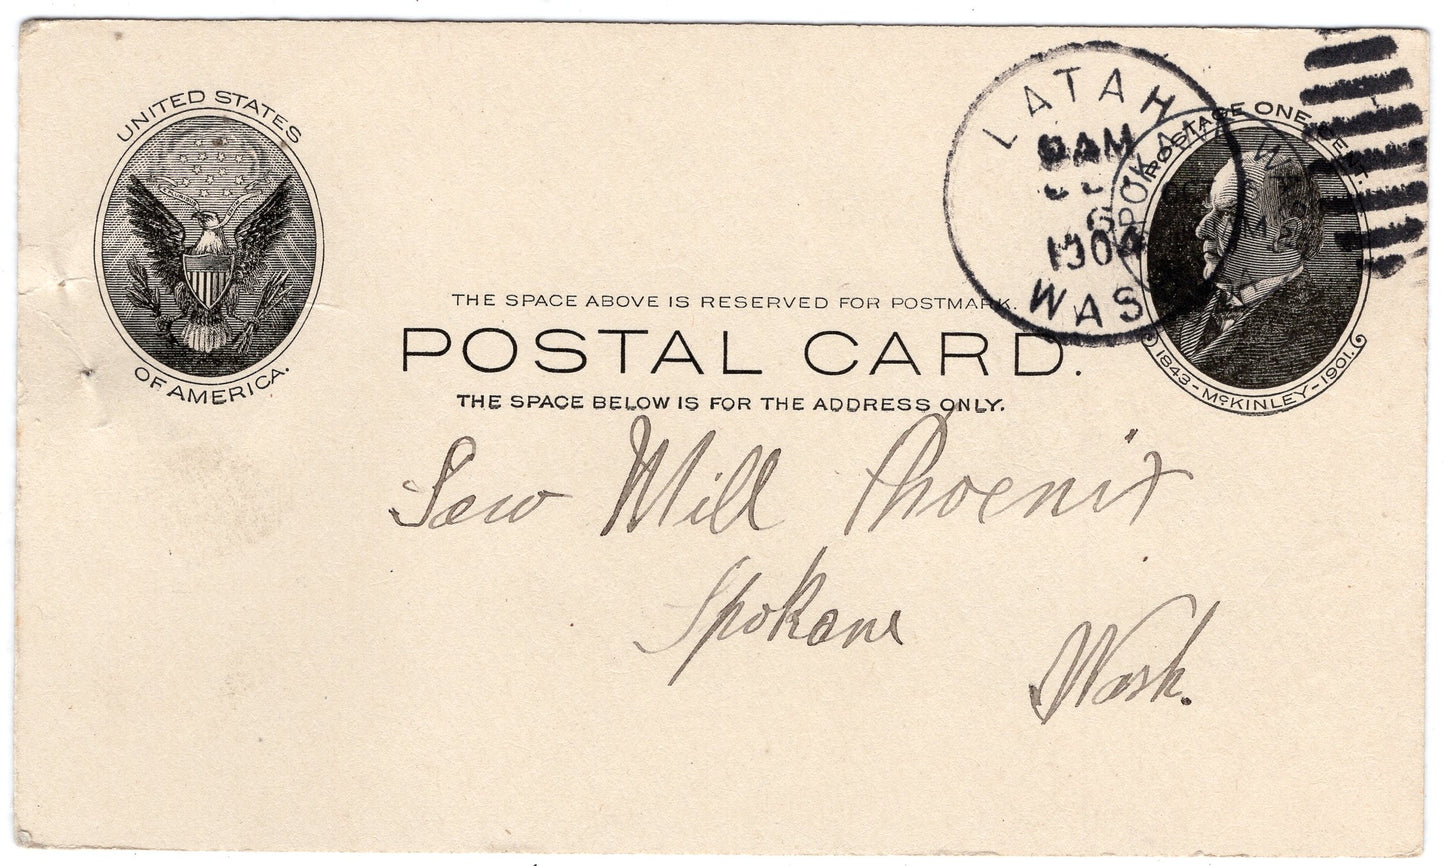 UNITED STATES
OF AMERICA.
LATAH
AM
6
1904
WASH
SPOKANE WASH
OCT
POSTAGE ONE CENT.
1843-McKINLEY-1901.
THE SPACE ABOVE IS RESERVED FOR POSTMARK.
POSTAL CARD.
THE SPACE BELOW IS FOR THE ADDRESS ONLY.
Saw Mill Phoenix
Spokane
Wash.